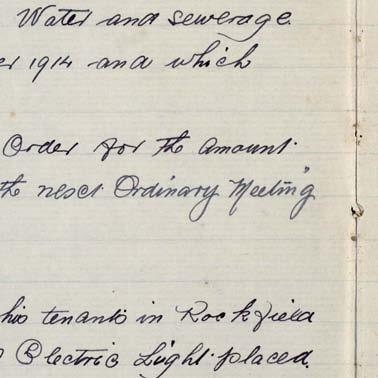 Water and sewerage.
er 1914 and which
Order for the amount.
the next Ordinary Meeting"
his tenants in Rockfield
Electric Light placed.